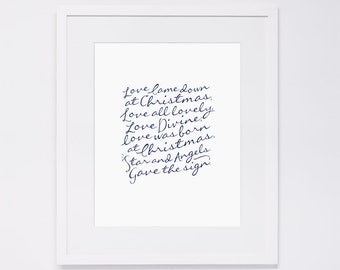 Love came down
at Christmas.
Love all lovely
Love Divine.
love was born
at Christmas.
Star and Angels
Gave the sign.